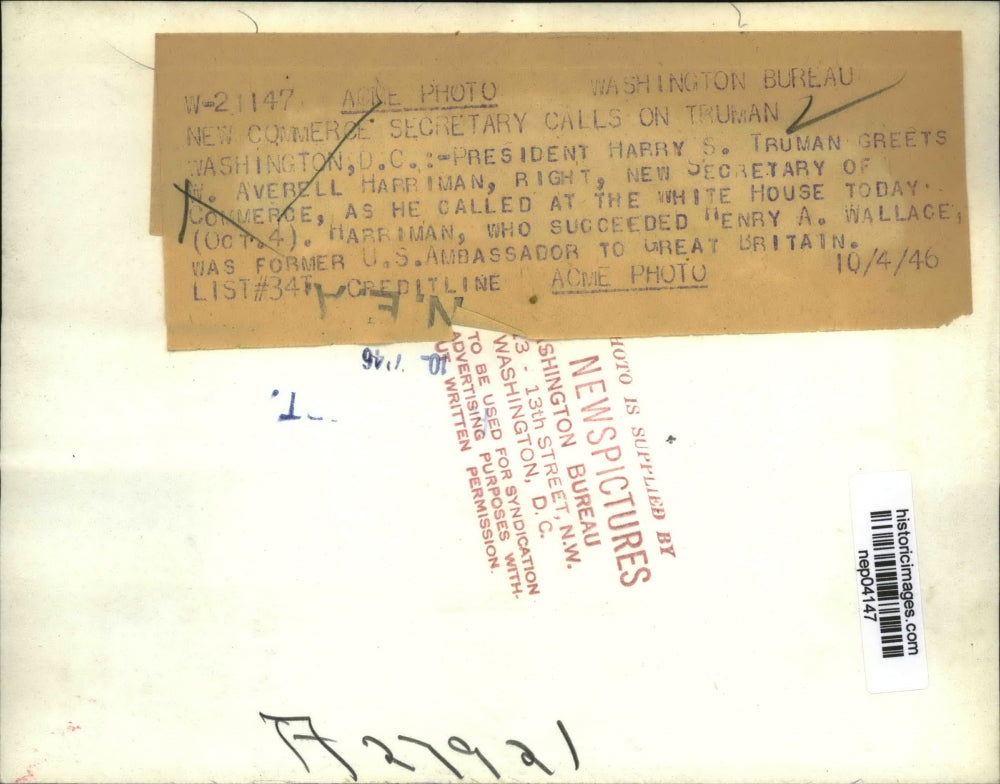 W-21147 ACME PHOTO WASHINGTON BUREAU
NEW COMMERCE SECRETARY CALLS ON TRUMAN
WASHINGTON, D.C.:-PRESIDENT HARRY S. TRUMAN GREETS
W. AVERELL HARRIMAN, RIGHT, NEW SECRETARY OF
COMMERCE, AS HE CALLED AT THE WHITE HOUSE TODAY
(OCT.4). HARRIMAN, WHO SUCCEEDED HENRY A. WALLACE,
WAS FORMER U.S.AMBASSADOR TO GREAT BRITAIN.
LIST#34T CREDITLINE ACME PHOTO 10/4/46
N.E.A
HOTO IS SUPPLIED BY
NEWSPICTURES
SHINGTON BUREAU
3 - 13th STREET, N.W.
WASHINGTON, D. C.
TO BE USED FOR SYNDICATION
ADVERTISING PURPOSES WITH-
UT WRITTEN PERMISSION.
historicimages.com
nep04147
A27921